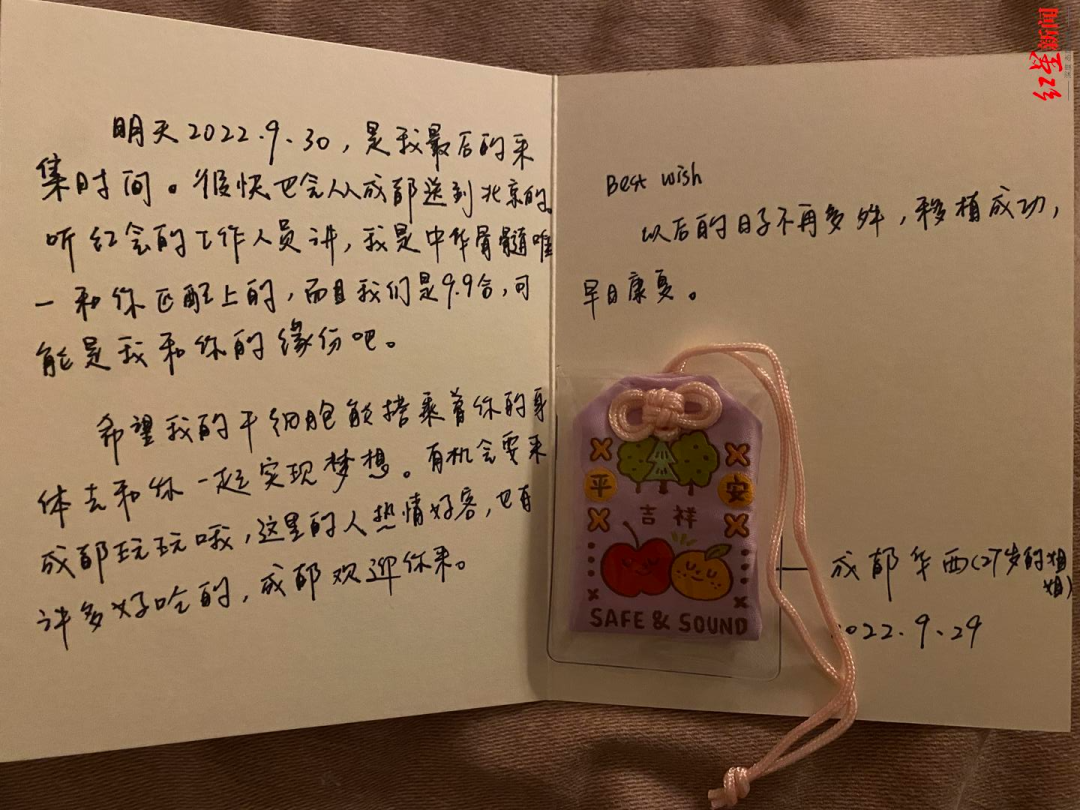 明天2022.9.30，是我最后的采
集时间。很快也会从成都送到北京的。
听红会的工作人员讲，我是中华骨髓唯
一和你匹配上的，而且我们是9.9合，可
能是我和你的缘份吧。
希望我的干细胞能搭乘着你的身
体去和你一起实现梦想。有机会要来
成都玩玩哦，这里的人热情好客，也有
许多好吃的，成都欢迎你来。
Best wish
以后的日子不再多舛，移植成功，
早日康复。
平 安
吉祥
SAFE & SOUND
— 成都华西（27岁的姐姐）
2022.9.29